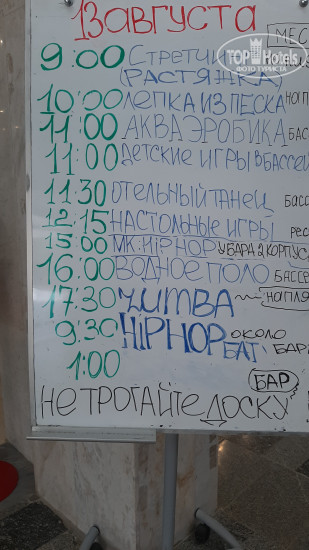 13 АВГУСТА
МЕС
TOP Hotels
ФОТО ТУРИСТА
9:00 Стретчи
(РАСТЯЖКА)
10:00 ЛЕПКА ИЗ ПЕСКА НАПЛ
11:00 АКВААЭРОБИКА БАС
11:00 ДЕТСКИЕ ИГРЫ В БАССЕЙ
11:30 ОТЕЛЬНЫЙ ТАНЕЦ БАСС
12:15 НАСТОЛЬНЫЕ ИГРЫ РЕС
15:00 МК:HIPHOP У БАРА 2 КОРПУС
16:00 ВОДНОЕ ПОЛО БАССЕ
17:30 ZUMBA НА ПЛЯ
9:30 HIPHOP ОКОЛО
1:00 БАТ БАР
БАР
НЕ ТРОГАЙТЕ ДОСКУ